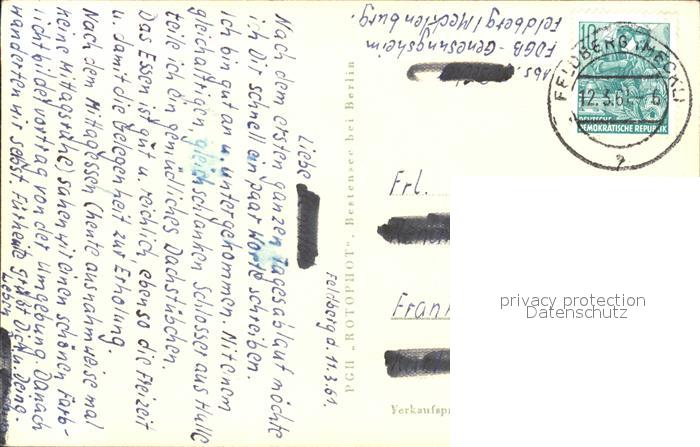 Feldberg d. 11.3.61.
Liebe
Nach dem ersten ganzen Tagesablauf möchte
ich Dir schnell ein paar Worte schreiben.
Ich bin gut an u. untergekommen. Mit einem
gleichaltrigen, gleichschlanken Schlosser aus Halle
teile ich ein gemütliches Dachstübchen.
Das Essen ist gut u. reichlich, ebenso die Freizeit
u. damit die Gelegenheit zur Erholung.
Nach dem Mittagessen (heute ausnahmsweise mal
keine Mittagsruhe) sahen wir einen schönen Farb-
lichtbildervortrag von der Umgebung. Danach
wanderten wir selbst. Für heute grüßt Dich u. Deine
Lieben
Abs.
FDGB-Genesungsheim
Feldberg/Mecklenburg.
PGH „ROTOPHOT", Bestensee bei Berlin
10
DEUTSCHE
DEMOKRATISCHE REPUBLIK
FELDBERG (MECKL)
12.3.61
Frl.
Frank
Verkaufspr
privacy protection
Datenschutz